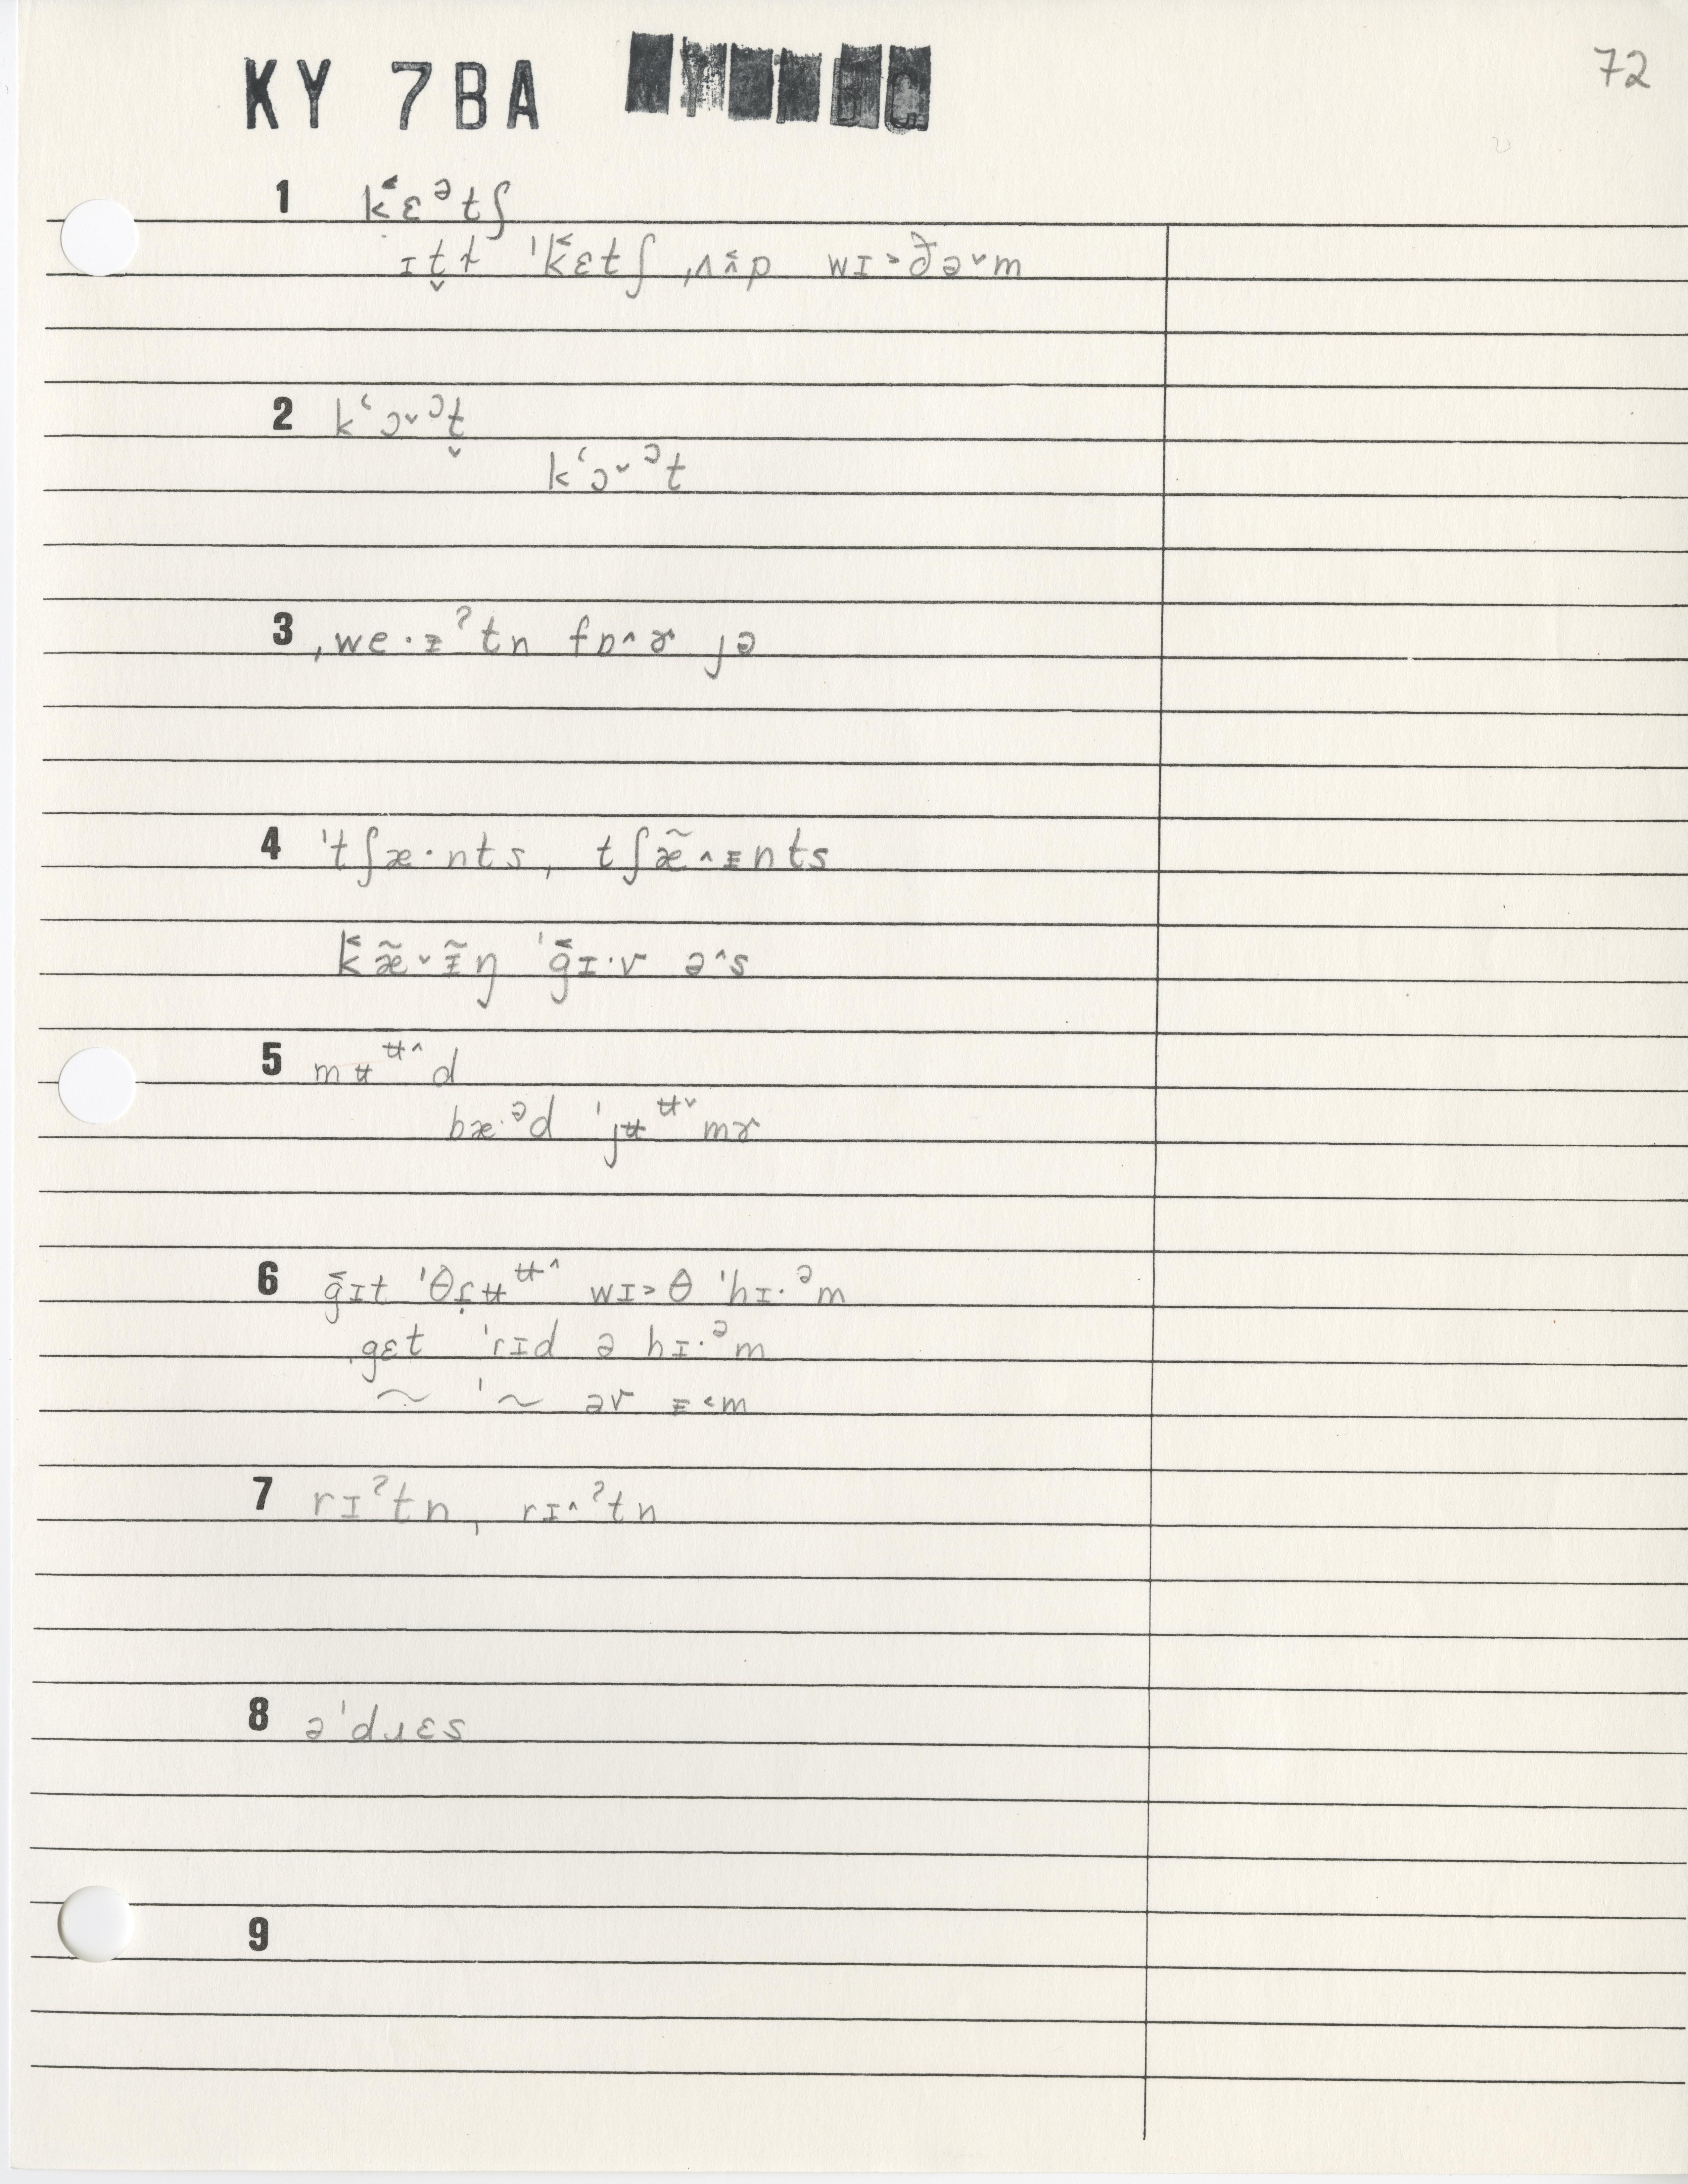 KY 7BA
72
1 k̆ɛᵊtʃ
ɪt̬ɫ ˈk̆ɛtʃ ˌʌʌ̆p wɪ˃ð̵ə˅m
2 kʻɔ˅ᵓt̬
kʻɔ˅ᵓt
3 ˌwe·ᵻˀtn fɒ˄ɚ jə
4 ˈtʃæ·nts, tʃæ̃˄ᵻnts
k̆æ̃˅ᵻ̃ŋ ˈğɪ·v ə˄s
5 mʉᶶ˄d
bæ·ᵊd ˈjʉᶶ˅mɚ
6 ğɪt ˈθɾ̣ʉᶶ˄ wɪ˃θ ˈhɪ·ᵊm
gɛt ˈrɪd ə hɪ·ᵊm
~ ˈ~ əv ᵻ˂m
7 rɪˀtn, rɪ˄ˀtn
8 əˈdɹɛs
9